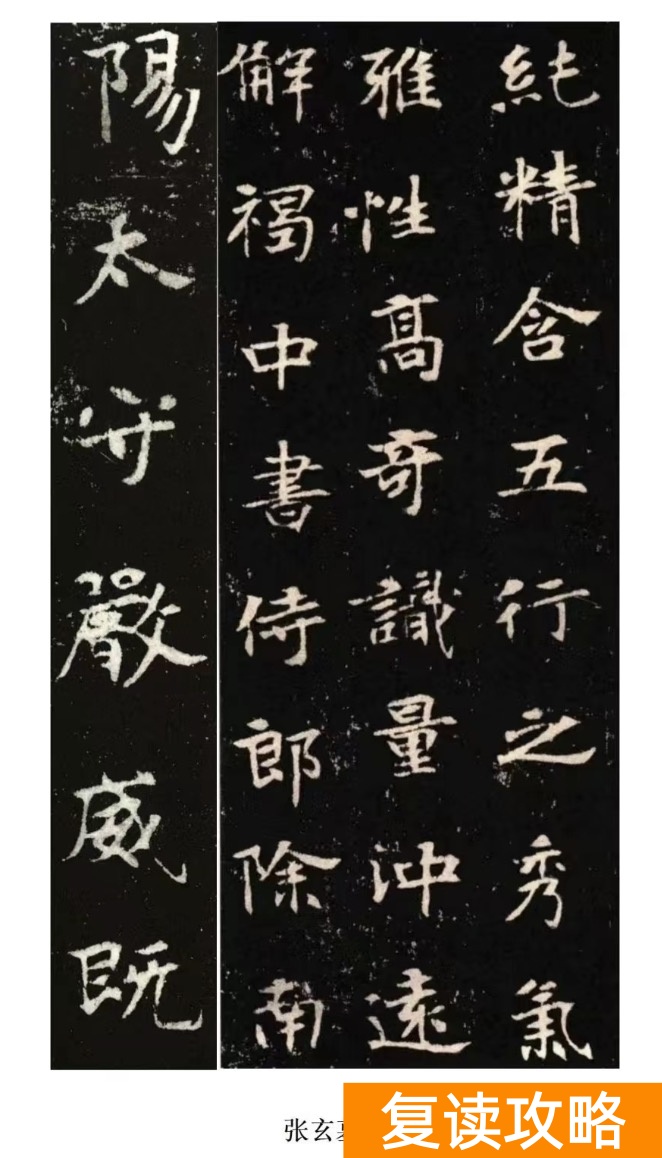 純精含五行之秀氣
雅性高奇識量沖遠
解褐中書侍郎除南
陽太守嚴威既
张玄墓
复读攻略